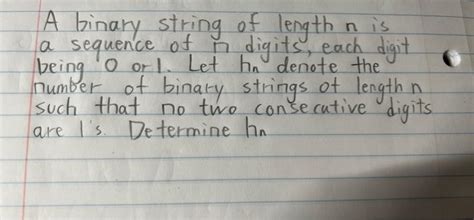 A binary string of length n is
a sequence of n digits, each digit
being 0 or 1. Let hn denote the
number of binary strings of length n
such that no two consecutive digits
are 1's. Determine hn